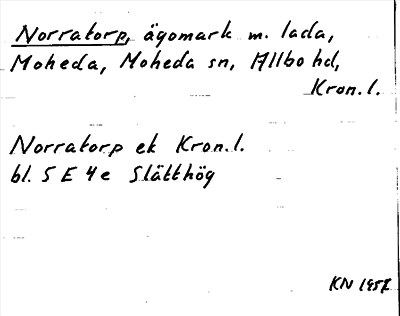 Norratorp, ägomark m. lada,
Moheda, Moheda sn, Allbo hd,
Kron. l.
Norratorp ek Kron. l.
bl. 5 E 4e Slätthög
KN